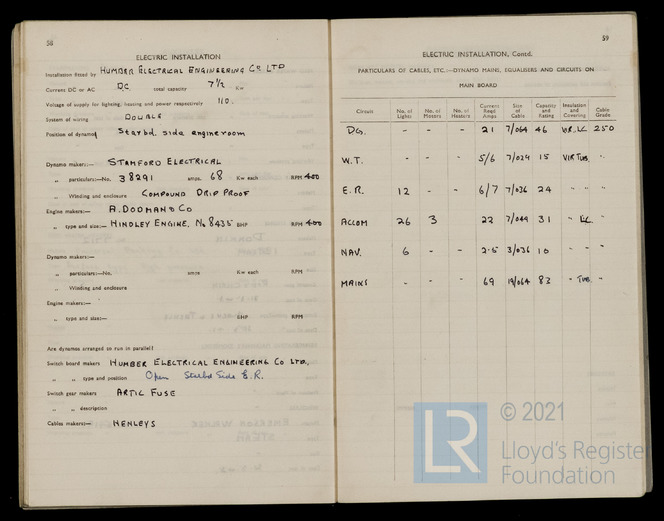 58
ELECTRIC INSTALLATION
Installation fitted by HUMBER ELECTRICAL ENGINEERING Co LTD
Current DC or AC DC total capacity 7½ Kw
Voltage of supply for lighting, heating and power respectively 110.
System of wiring DOUBLE
Position of dynamos Starbd. side engineroom
Dynamo makers:— STAMFORD ELECTRICAL
„ particulars:—No. 38291 amps. 68 Kw each RPM 400
„ Winding and enclosure COMPOUND DRIP PROOF
Engine makers:— A. DODMAN & Co
„ type and size:— HINDLEY ENGINE, No 8435 BHP RPM 400
Dynamo makers:—
„ particulars:—No. amps Kw each RPM
„ Winding and enclosure
Engine makers:—
„ type and size:— BHP RPM
Are dynamos arranged to run in parallel?
Switch board makers HUMBER ELECTRICAL ENGINEERING Co LTD.,
„ „ type and position Open Starbd Side E.R.
Switch gear makers ARTIC FUSE
„ „ description
Cables makers:— HENLEYS
59
ELECTRIC INSTALLATION, Contd.
PARTICULARS OF CABLES, ETC.:—DYNAMO MAINS, EQUALISERS AND CIRCUITS ON
MAIN BOARD
Circuit No. of Lights No. of Motors No. of Heaters Current Reqd. Amps Size of Cable Capacity and Rating Insulation and Covering Cable Grade
DG. - - - 21 7/064 46 V.R.LC 250
W.T. - - 5/6 7/029 15 VIR TUB. „
E.R. 12 - - 6/7 7/036 24 „ „ „
ACCOM 26 3 22 7/044 31 „ LC. „
NAV. 6 - - 2.5 3/036 10 „ „
MAINS 69 19/064 83 „ TUB. „
LR
© 2021
Lloyd's Register
Foundation